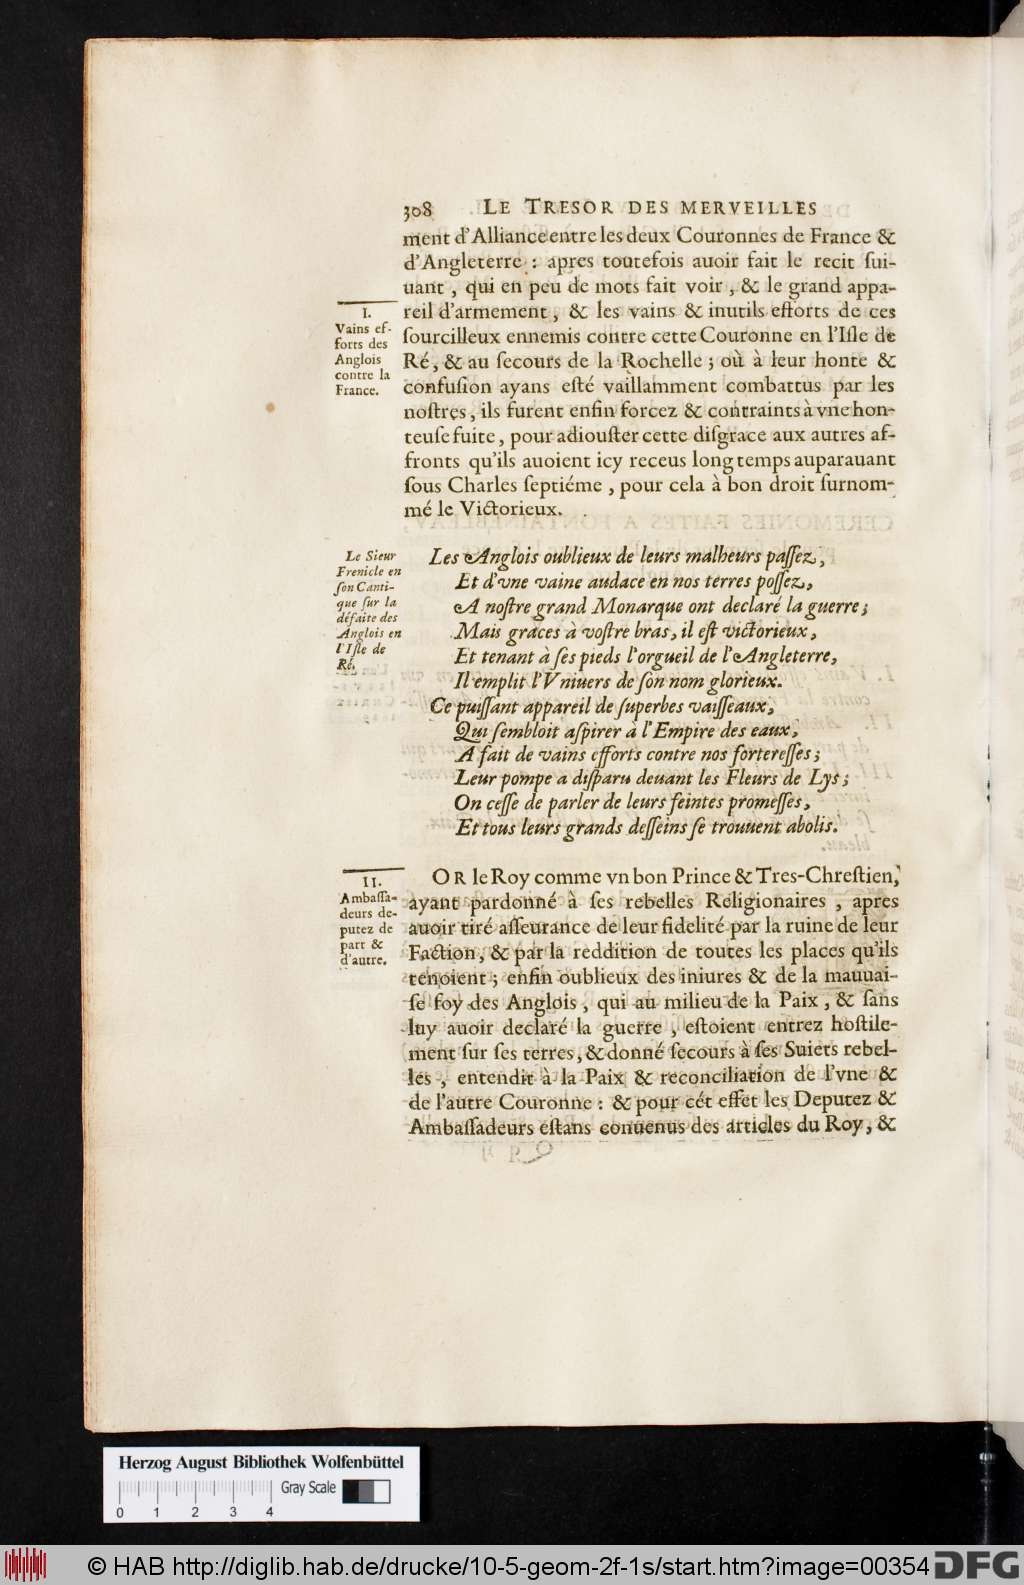 308 LE TRESOR DES MERVEILLES
ment d'Alliance entre les deux Couronnes de France &
d'Angleterre : apres toutefois auoir fait le recit ſui-
uant, qui en peu de mots fait voir, & le grand appa-
reil d'armement, & les vains & inutils efforts de ces
ſourcilleux ennemis contre cette Couronne en l'Iſle de
Ré, & au ſecours de la Rochelle ; où à leur honte &
confuſion ayans eſté vaillamment combattus par les
noſtres, ils furent enfin forcez & contraints à vne hon-
teuſe fuite, pour adiouſter cette diſgrace aux autres af-
fronts qu'ils auoient icy receus long temps auparauant
ſous Charles ſeptiéme, pour cela à bon droit ſurnom-
mé le Victorieux.
I.
Vains ef-
forts des
Anglois
contre la
France.
Les Anglois oublieux de leurs malheurs paſſez,
Et d'vne vaine audace en nos terres poſſez,
A noſtre grand Monarque ont declaré la guerre ;
Mais graces à voſtre bras, il eſt victorieux,
Et tenant à ſes pieds l'orgueil de l'Angleterre,
Il emplit l'Vniuers de ſon nom glorieux.
Ce puiſſant appareil de ſuperbes vaiſſeaux,
Qui ſembloit aſpirer à l'Empire des eaux,
A fait de vains efforts contre nos fortereſſes ;
Leur pompe a diſparu deuant les Fleurs de Lys ;
On ceſſe de parler de leurs feintes promeſſes,
Et tous leurs grands deſſeins ſe trouuent abolis.
Le Sieur
Frenicle en
ſon Canti-
que ſur la
défaite des
Anglois en
l'Iſle de
Ré.
OR le Roy comme vn bon Prince & Tres-Chreſtien,
ayant pardonné à ſes rebelles Religionaires, apres
auoir tiré aſſeurance de leur fidelité par la ruine de leur
Faction, & par la reddition de toutes les places qu'ils
tenoient ; enfin oublieux des iniures & de la mauuai-
ſe foy des Anglois, qui au milieu de la Paix, & ſans
luy auoir declaré la guerre, eſtoient entrez hoſtile-
ment ſur ſes terres, & donné ſecours à ſes Suiets rebel-
les, entendit à la Paix & reconciliation de l'vne &
de l'autre Couronne : & pour cét effet les Deputez &
Ambaſſadeurs eſtans conuenus des articles du Roy, &
II.
Ambaſſa-
deurs de-
putez de
part &
d'autre.
Herzog August Bibliothek Wolfenbüttel
Gray Scale
0 1 2 3 4
© HAB http://diglib.hab.de/drucke/10-5-geom-2f-1s/start.htm?image=00354
DFG